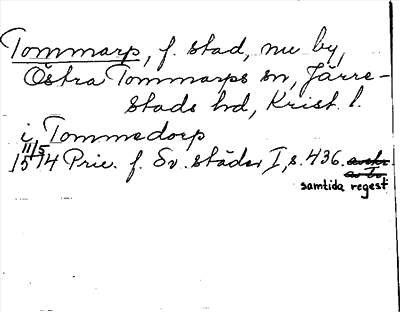 Tommarp, f. stad, nu by,
Östra Tommarps sn, Järre-
stads hd, Krist. l.
i Tommedorp
11/5
1514 Priv. f. Sv. städer I, s. 436.
samtida regest